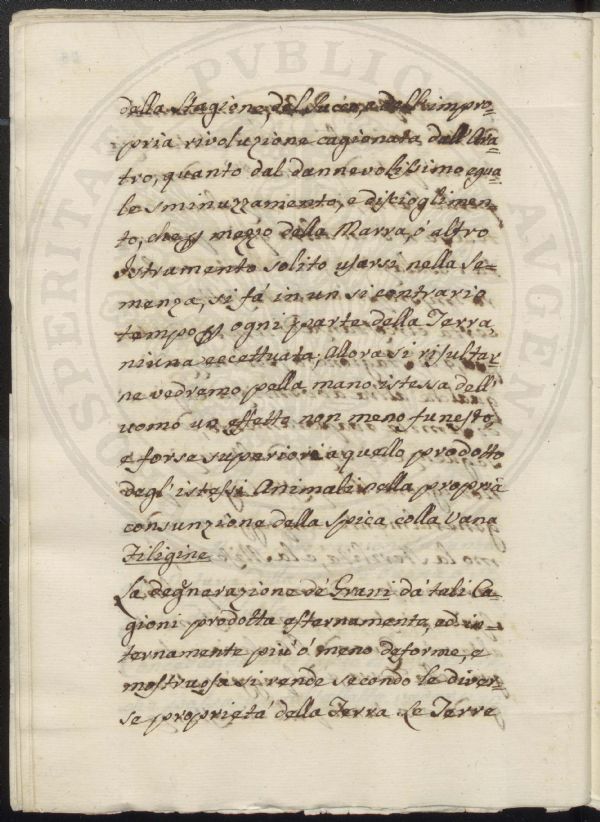 della Stagione, del succo, e dell'impro=
pria rivoluzione cagionata dall'Ara=
tro, quanto dal dannevolissimo egua=
le sminuzzamento, e discioglimen=
to, che p mezzo della Marra, ó altro
Istramento solito usarsi nella Se=
menza, si fá in un sì contrario
tempo p ogni parte della Terra,
niuna eccettuata; Allora si risultar=
ne vedremo pella mano istessa dell'
uomo un effetto non meno funesto,
e forse superiore a quello prodotto
dagl'istessi Animali nella propria
consunzione della Spica colla Vana
Filigine
La degnarazione de' Grani da' tali Ca=
gioni prodotta esternamente, ed in=
ternamente piu' ó meno deforme, e
mostruosa si rende secondo le diver=
se proprietá della Terra. Le Terre
PUBLICAE
AUGENDAE
PROSPERITATI